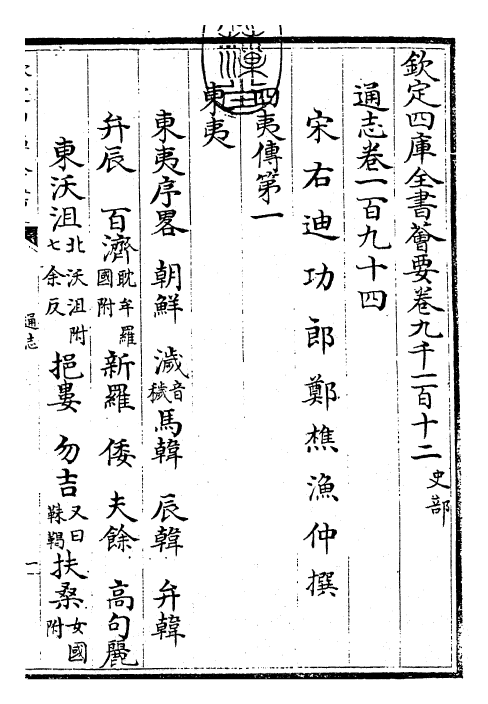 欽定四庫全書薈要卷九千一百十二 史部
通志卷一百九十四
宋右迪功郎鄭樵漁仲撰
四夷傳第一
東夷
東夷序畧 朝鮮 濊音穢 馬韓 辰韓 弁韓
弁辰 百濟耽牟羅國附 新羅 倭 夫餘 高句麗
東沃沮北沃沮附七余反 挹婁 勿吉又曰靺鞨 扶桑女國附
通志
一